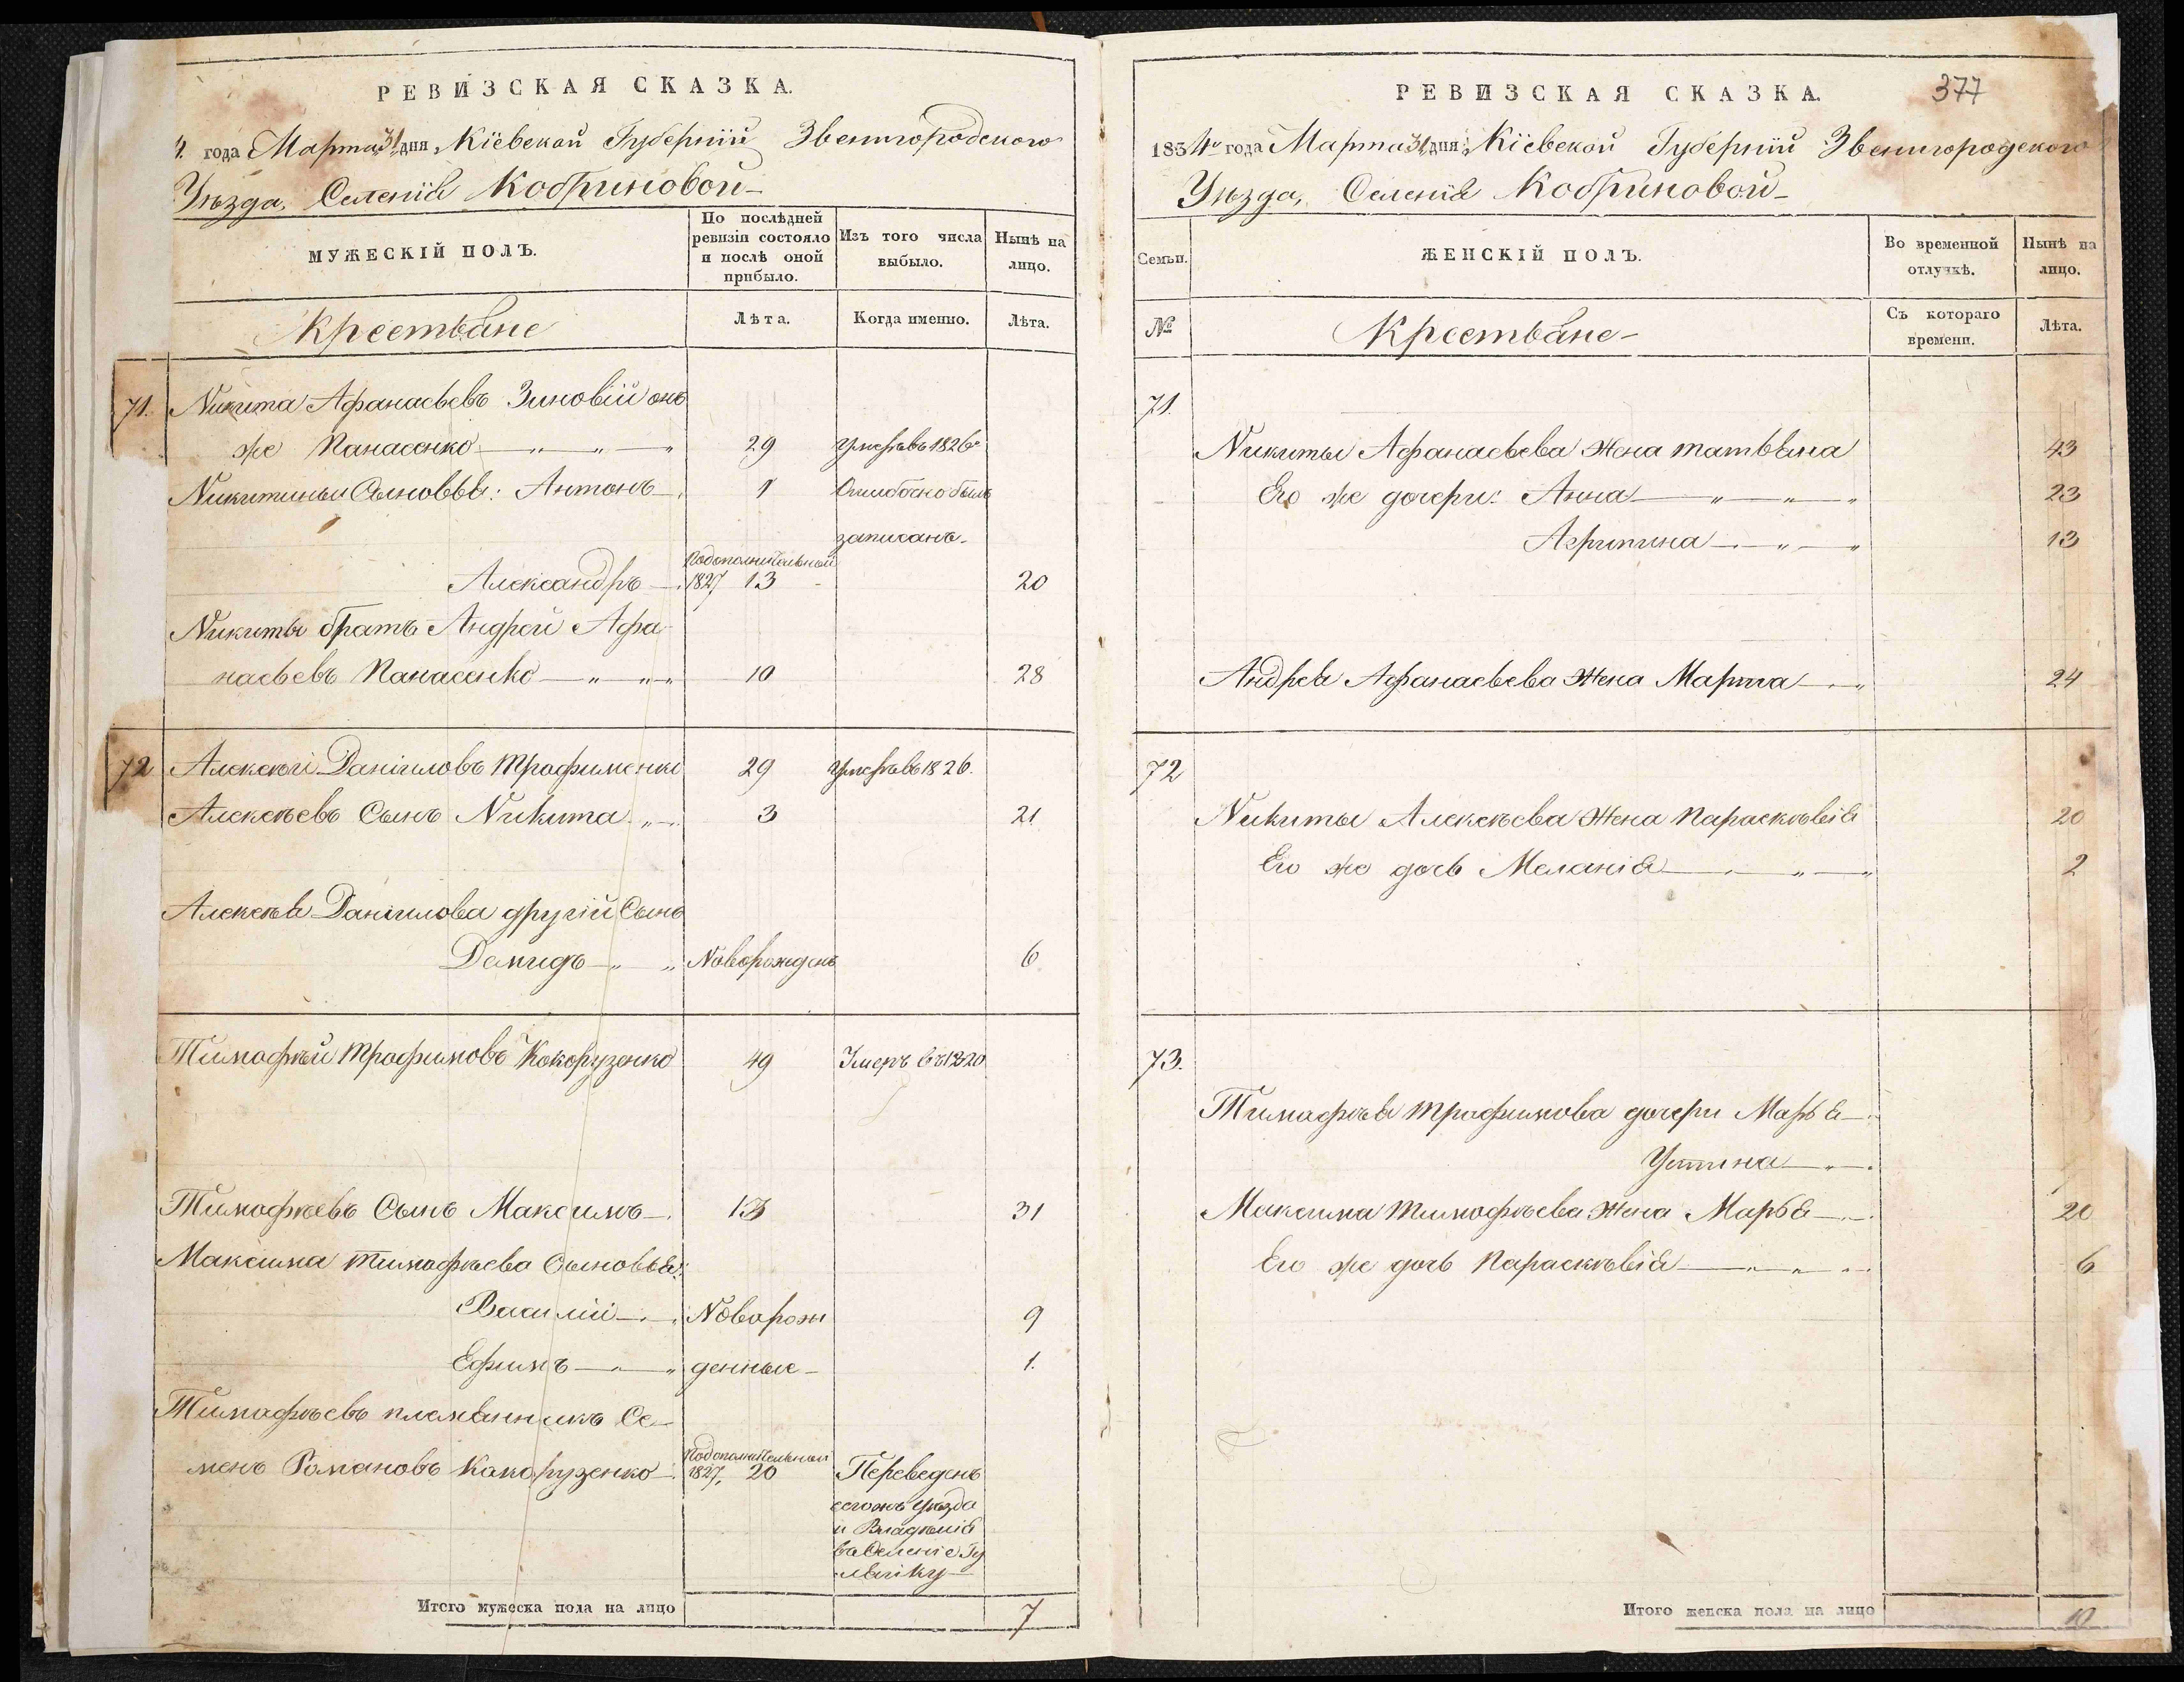 РЕВИЗСКАЯ СКАЗКА.
4. года Марта 31 дня, Кіевской Губерніи Звенигородского
Уѣзда, Селенія Кобриновой
МУЖЕСКІЙ ПОЛЪ.
По послѣдней ревизіи состояло и послѣ оной прибыло.
Изъ того числа выбыло.
Нынѣ на лицо.
Крестьяне
Лѣта.
Когда именно.
Лѣта.
71. Никита Афанасьевъ Зиновій онъ
же Панасенко 29 Умеръ въ 1826
Никитины Сыновья: Антонъ 1 Ошибочно былъ
записанъ.
Подополнительной
Александръ 1827 13 20
Никиты братъ Андрей Афа
насьевъ Панасенко 10 28
72 Алексѣй Даніиловъ Трофименко 29 Умеръ въ 1826.
Алексѣевъ Сынъ Никита 3 21.
Алексѣя Даніилова другій Сынъ
Демидъ Новорожденъ 6
Тимофѣй Трофимовъ Кокорузенко 49 Умеръ въ 1820
Тимофѣевъ Сынъ Максимъ 13 31
Максима Тимофѣева Сыновья:
Василій Новорож 9
Ефимъ денные 1.
Тимафѣевъ племянникъ Се
Подополнительной
менъ Романовъ Какорузенко 1827, 20 Переведенъ
сегожъ уѣзда
и Владѣнія
въ Селеніе Гу
ляйку
Итого мужеска пола на лицо 7
РЕВИЗСКАЯ СКАЗКА.
377
1834го года Марта 31 дня, Кіевской Губерніи Звенигородского
Уѣзда, Селенія Кобриновой
Семьи.
ЖЕНСКІЙ ПОЛЪ.
Во временной отлучкѣ.
Нынѣ на лицо.
№
Крестьяне
Съ котораго времени.
Лѣта.
71.
Никиты Афанасьева жена Татьяна 43
Его же дочери: Анна 23
Агрипина 13
Андрея Афанасьева жена Марта 24
72
Никиты Алексѣева жена Параскѣвія 20
Его же дочь Меланія 2
73.
Тимафѣя Трофимова дочери Марья
Устина
Максима Тимофѣева жена Марья 20
Его же дочь Параскѣвія 6
Итого женска пола на лицо 10